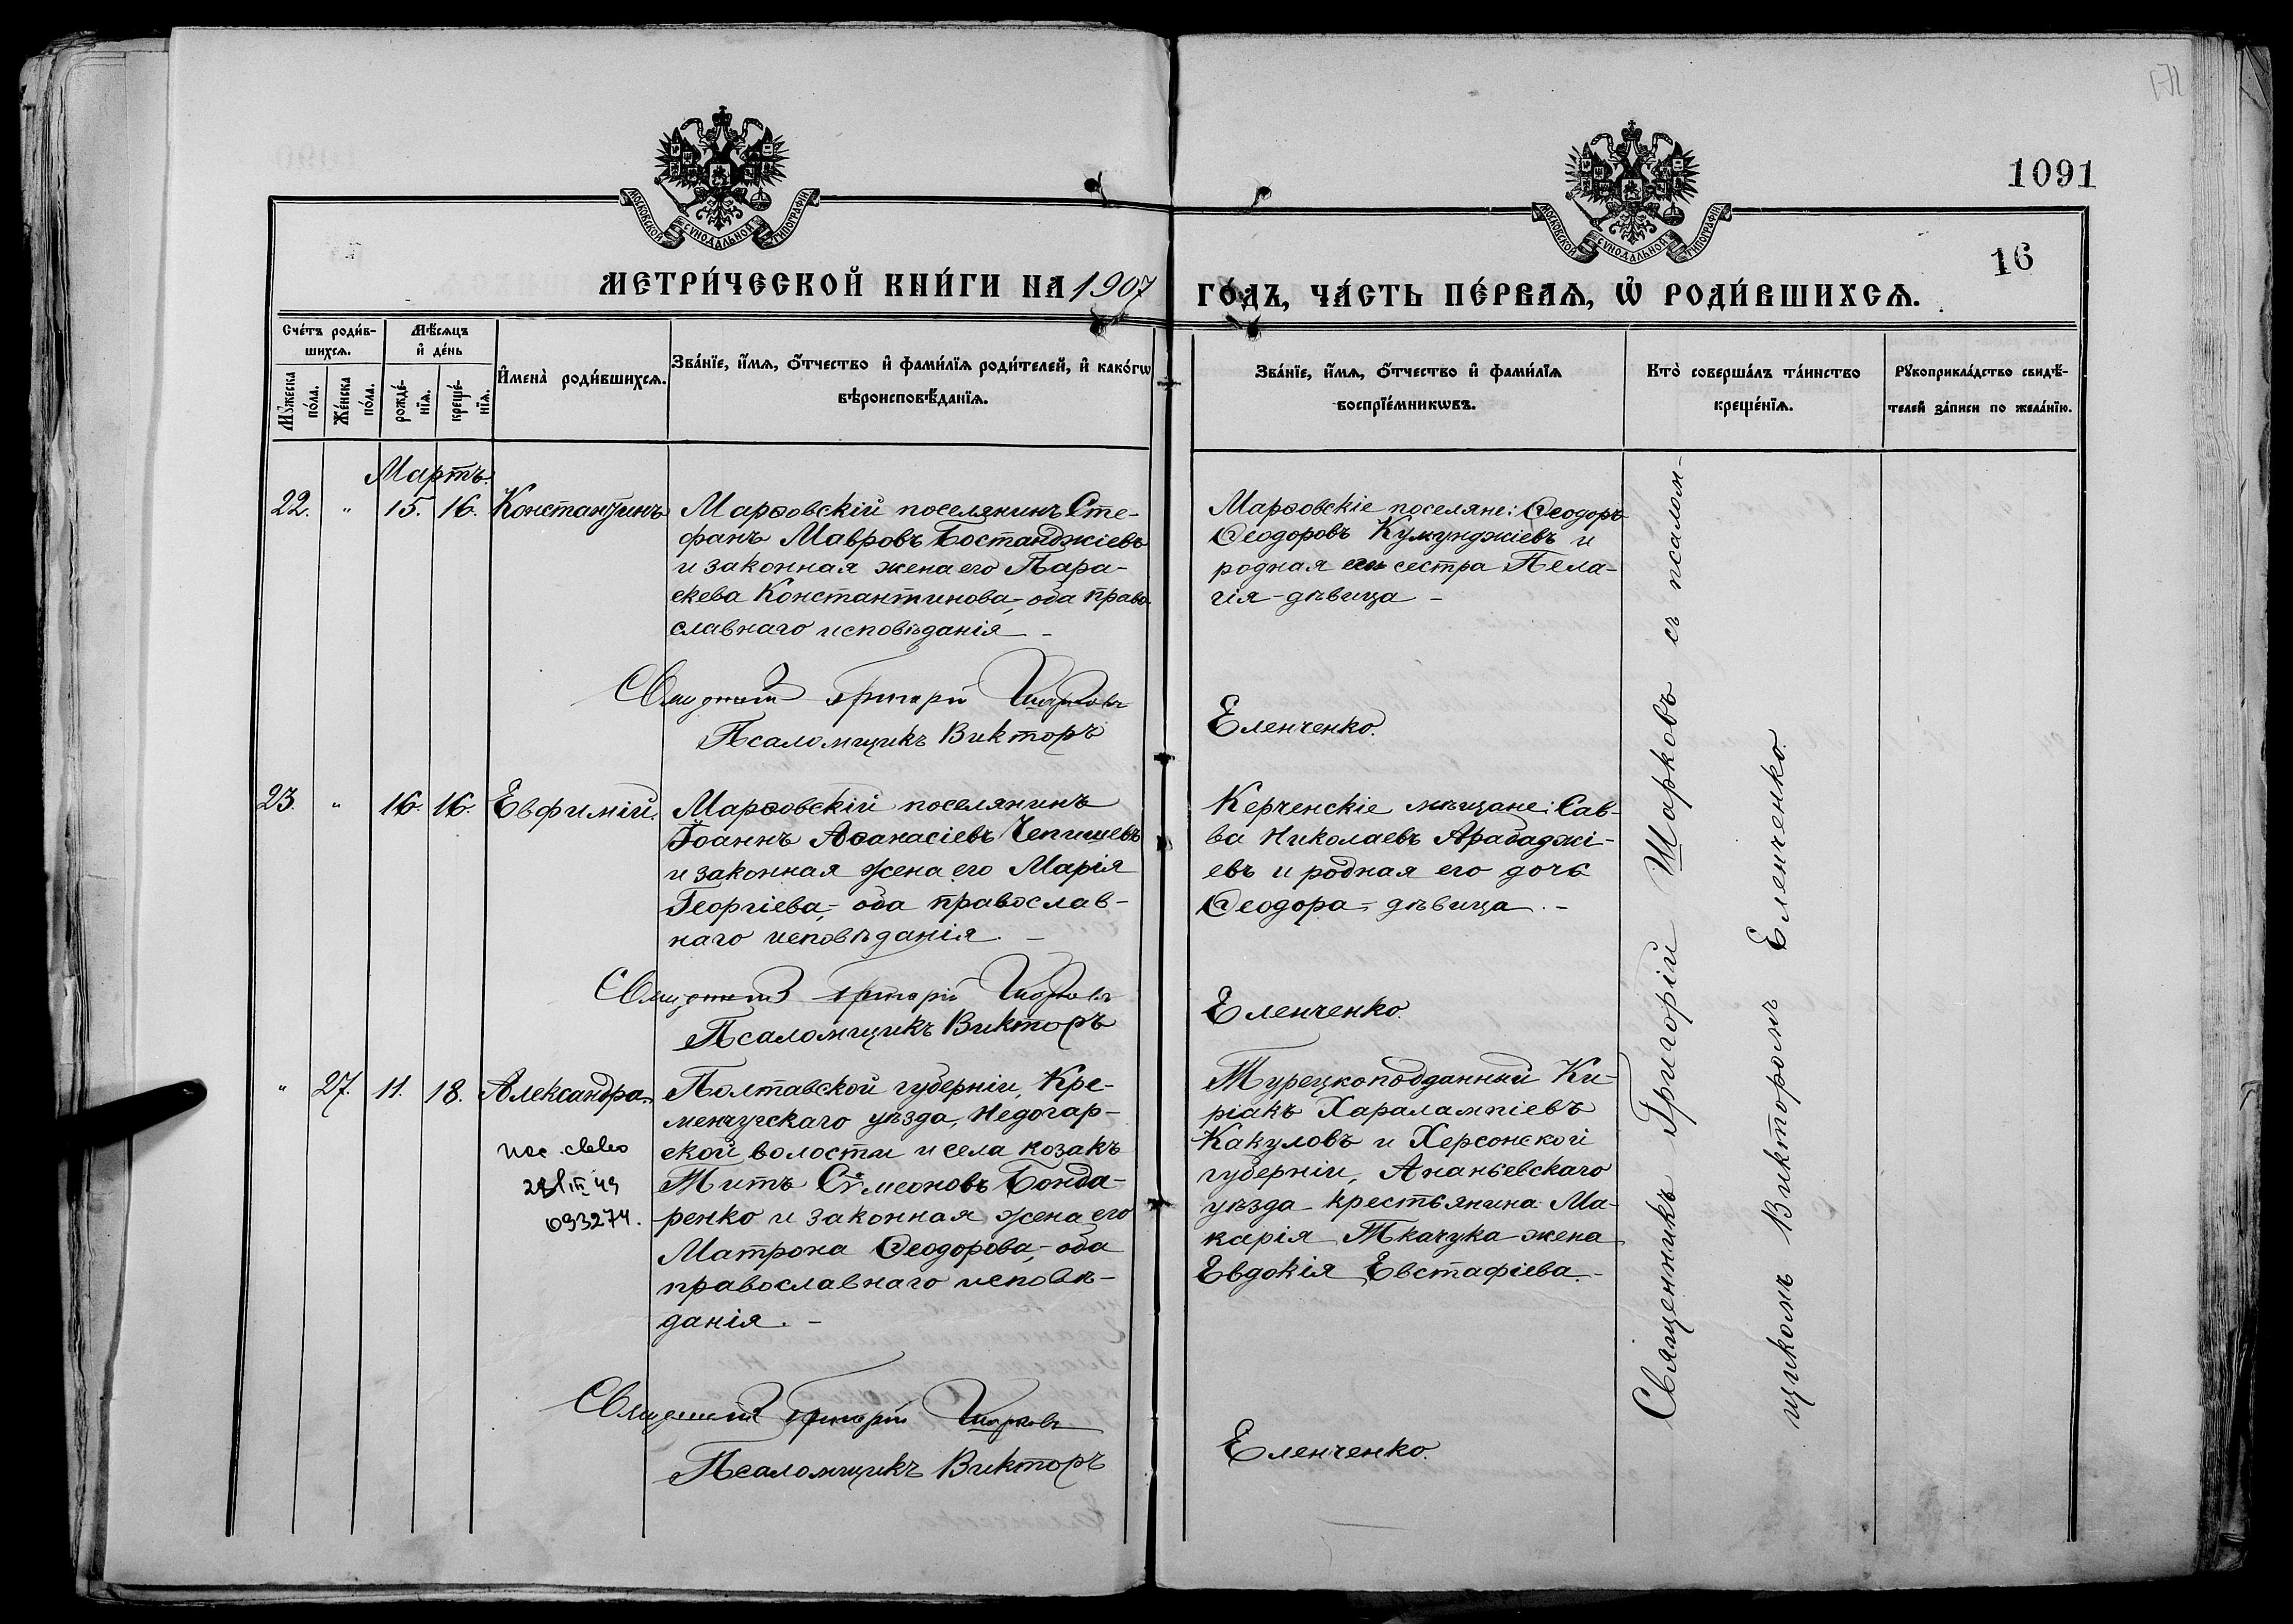 1091
16
МОСКОВСКОЙ СѴНОДАЛЬНОЙ ТИПОГРАФІИ
МОСКОВСКОЙ СѴНОДАЛЬНОЙ ТИПОГРАФІИ
МЕТРИ́ЧЕСКОЙ КНИ́ГИ НА 1907
ГО́ДЪ, ЧА́СТЬ ПЕ́РВАѦ, Ѽ РОДИ́ВШИХСѦ.
Сче́тъ роди́в-
шихсѧ.
Мѣ́сѧцъ
и҆ де́нь
Мꙋ́жеска
по́ла.
Же́нска
по́ла.
рожде́-
нїѧ.
креще́-
нїѧ.
И҆мена̀ роди́вшихсѧ.
Зва́нїе, и҆́мѧ, ѻ҆́тчество и҆ фами́лїѧ роди́телей, и҆ како́гѡ
вѣроисповѣ́данїѧ.
Зва́нїе, и҆́мѧ, ѻ҆́тчество и҆ фами́лїѧ
воспрїе́мникѡвъ.
Кто̀ соверша́лъ та́инство
креще́нїѧ.
Рꙋкоприкла́дство свидѣ́-
телей за́писи по жела́нїю.
Мартъ.
22. " 15. 16. Константинъ
Марѳовскій поселянинъ Сте-
фанъ Мавровъ Бостанджіевъ
и законная жена его Пара-
скева Константинова,- оба право-
славнаго исповѣданія -
Священникъ Григорій Шарковъ
Псаломщикъ Викторъ
Марѳовскіе поселяне: Ѳеодоръ
Ѳеодоровъ Кумунджіевъ и
родная его сестра Пела-
гія - дѣвица -
Еленченко.
23. " 16. 16. Евфимій.
Марѳовскій поселянинъ
Іоаннъ Аѳанасіевъ Чепишевъ
и законная жена его Марія
Георгіева,- оба православ-
наго исповѣданія. -
Священникъ Григорій Шарковъ
Псаломщикъ Викторъ
Керченскіе мѣщане: Сав-
ва Николаевъ Арабаджі-
евъ и родная его дочь
Ѳеодора - дѣвица. -
Еленченко.
" 27. 11. 18. Александра.
093274.
Полтавской губерніи, Кре-
менчугскаго уѣзда, Недогар-
ской волости и села козакъ
Титъ Сѵмеоновъ Бонда-
ренко и законная жена его
Матрона Ѳеодорова,- оба
православнаго исповѣ-
данія. -
Священникъ Григорій Шарковъ
Псаломщикъ Викторъ
Турецкоподданный Ки-
ріакъ Харалампіевъ
Какуловъ и Херсонской
губерніи, Ананьевскаго
уѣзда крестьянина Ма-
карія Ткачука жена
Евдокія Евстафіева. -
Еленченко.
Священникъ Григорій Шарковъ съ псалом-
щикомъ Викторомъ Еленченко.